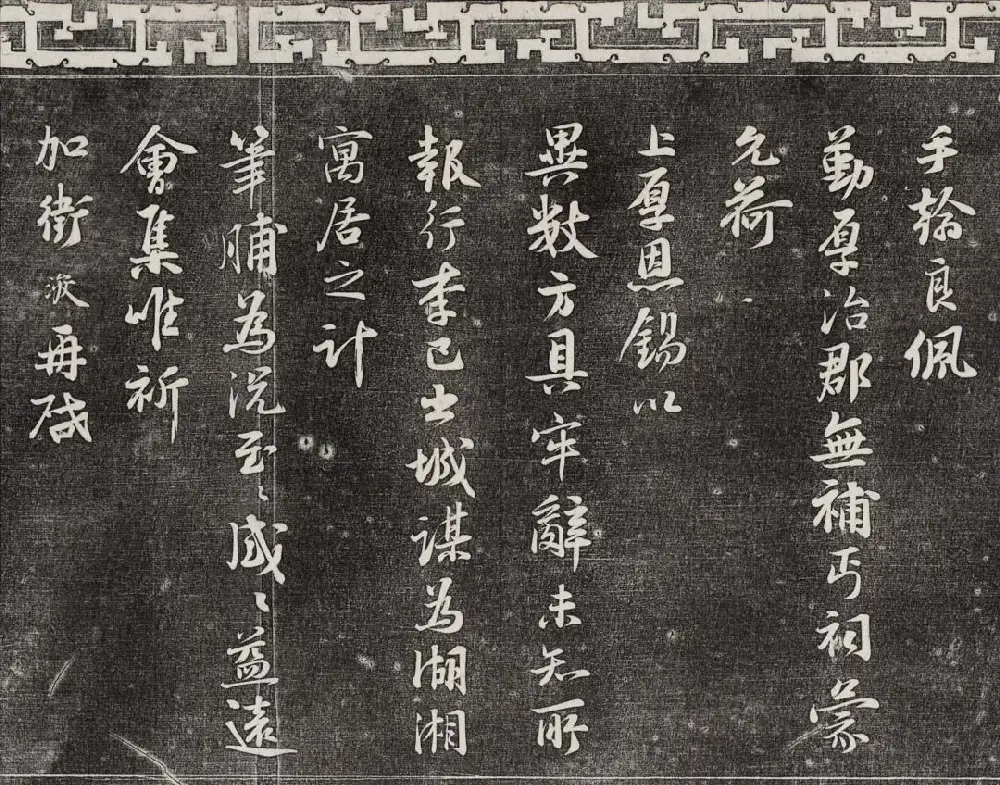 手翰良佩
勤厚治郡無補丐祠蒙
允荷
上厚恩錫以
異数方具牢辭未知所
報行李已出城謀為湖湘
寓居之計
筆脯為況至〻感〻益遠
會集唯祈
加衛浚再啓